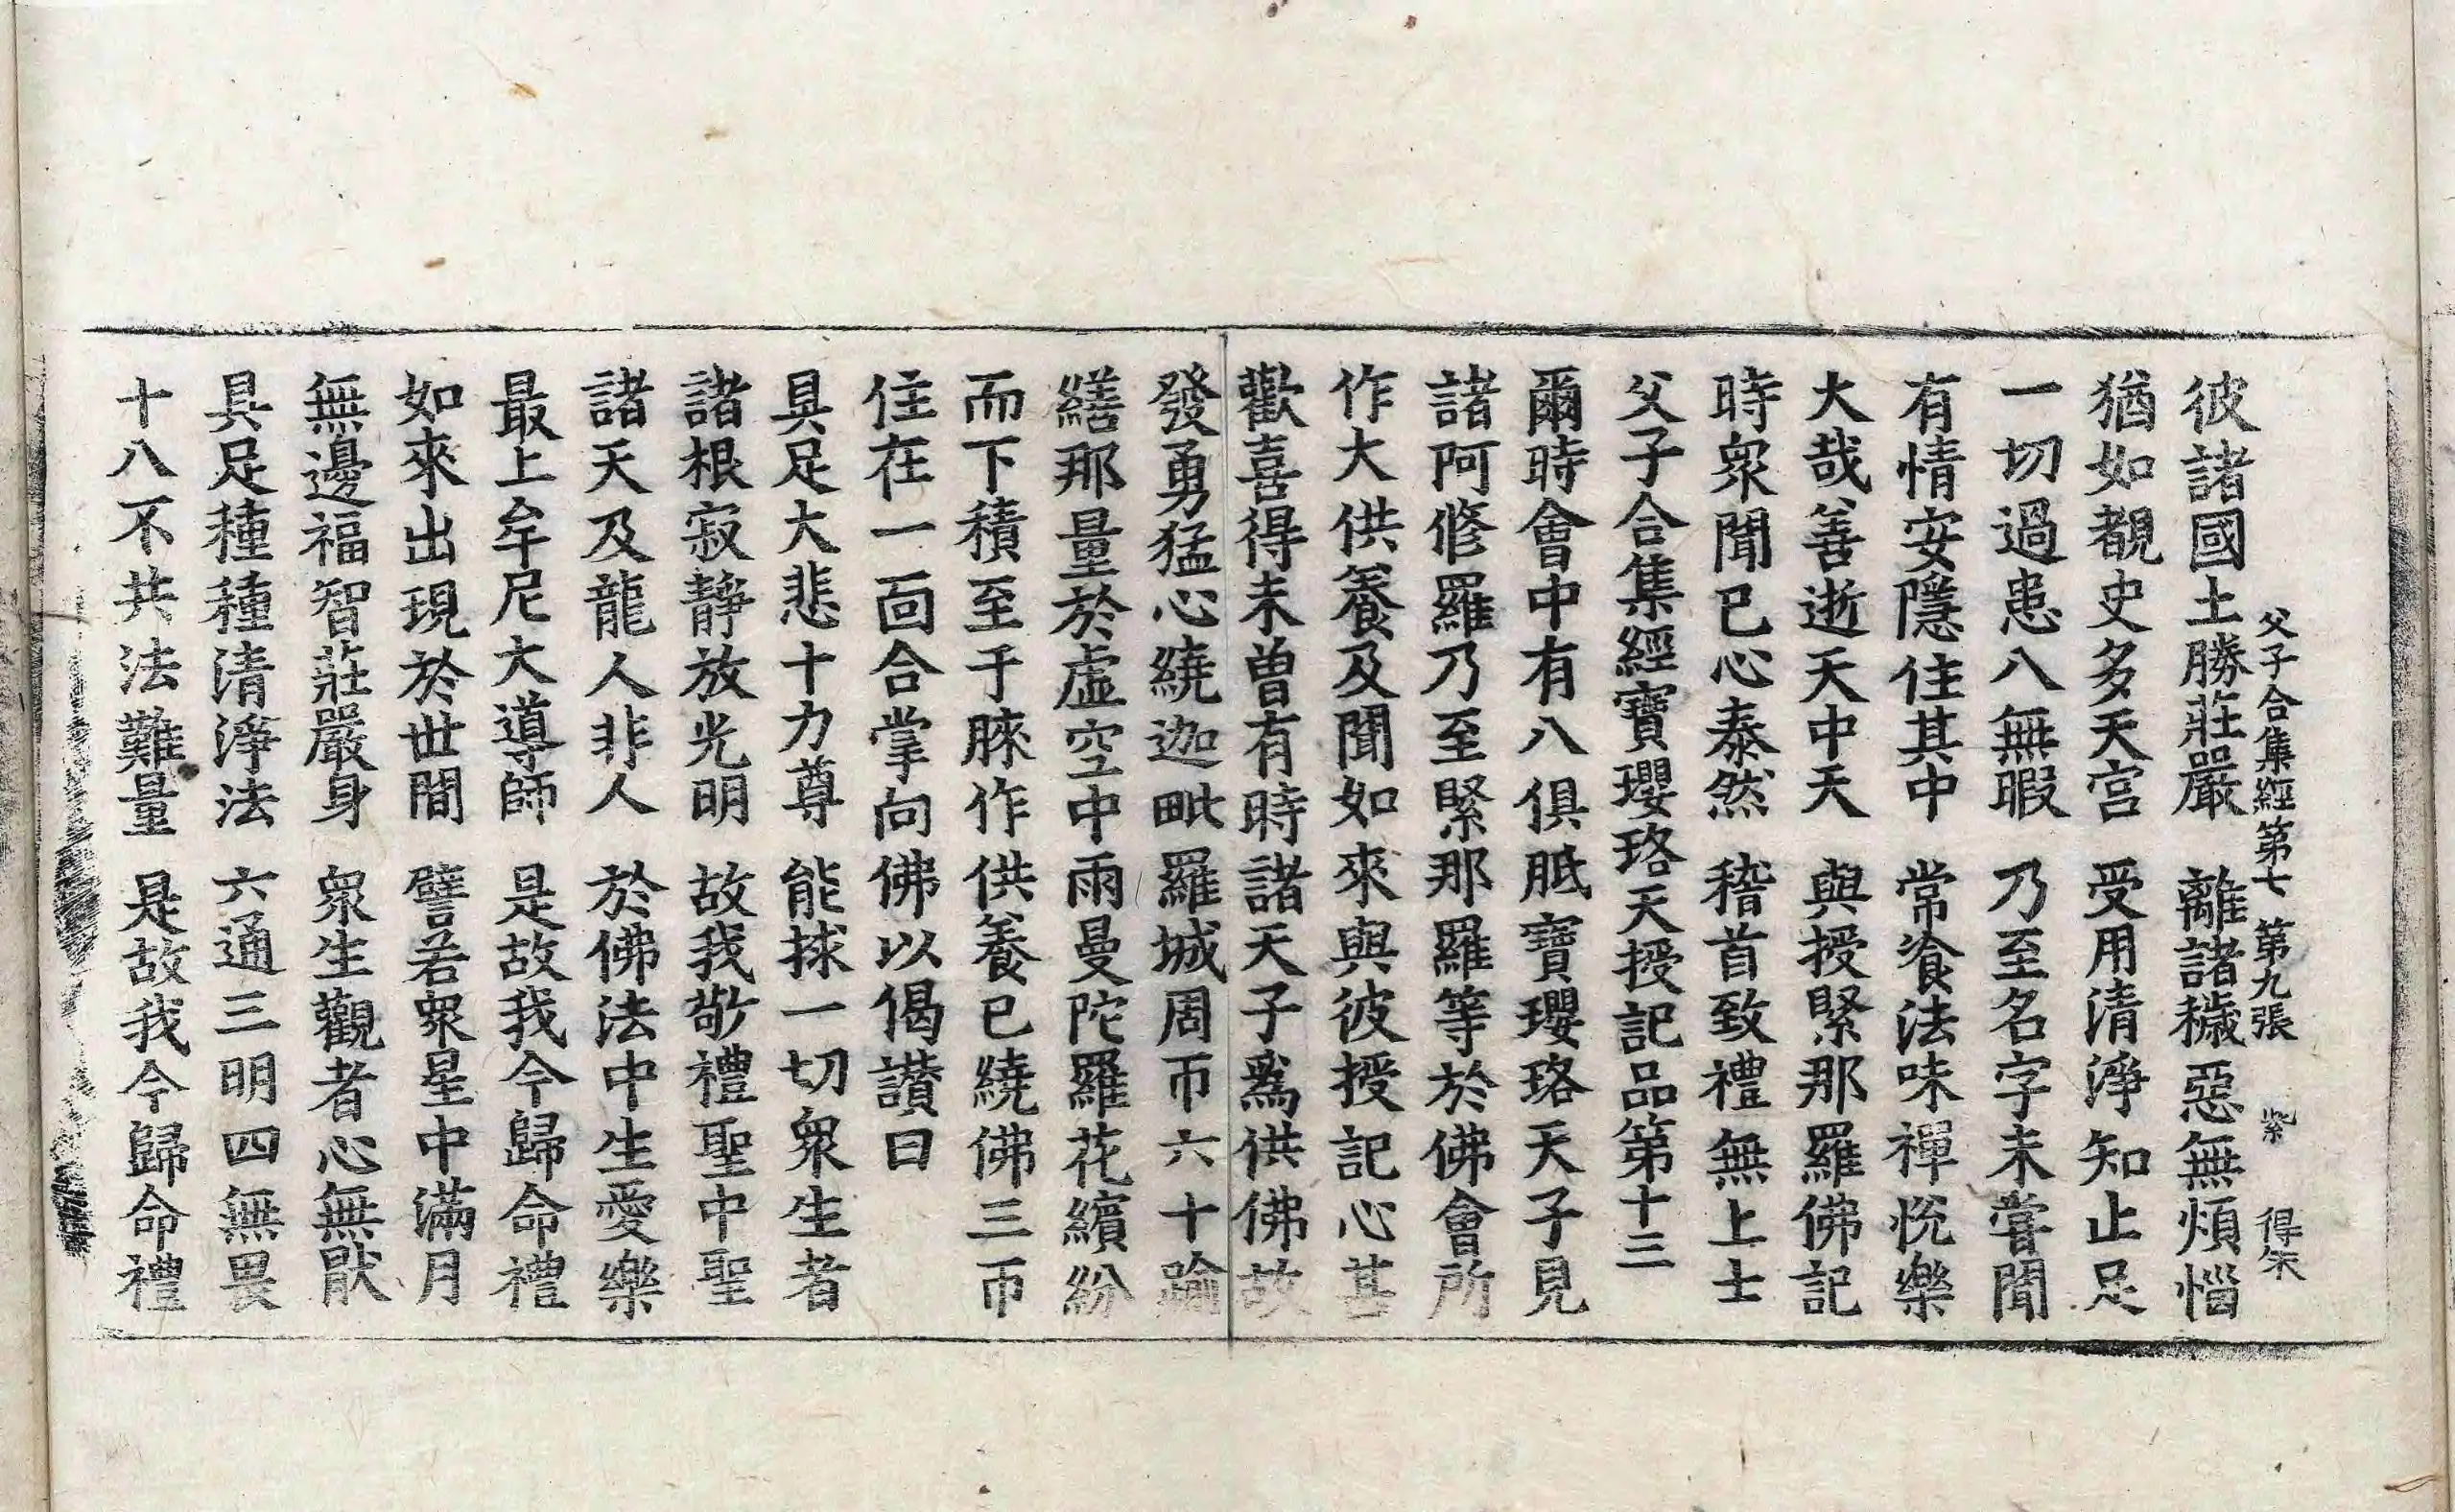 父子合集經第七 第九張 紫 得朱
彼諸國土勝莊嚴 離諸穢惡無煩惱
猶如覩史多天宮 受用清淨知止足
一切過患八無暇 乃至名字未甞聞
有情安隱住其中 常飡法味禪悅樂
大哉善逝天中天 與授緊那羅佛記
時衆聞已心泰然 稽首致禮無上士
父子合集經寶瓔珞天授記品第十三
爾時會中有八俱胝寶瓔珞天子見
諸阿修羅乃至緊那羅等於佛會所
作大供養及聞如來與彼授記心甚
歡喜得未曾有時諸天子爲供佛故
發勇猛心繞迦毗羅城周帀六十踰
繕那量於虛空中雨曼陀羅花繽紛
而下積至于膝作供養已繞佛三帀
住在一面合掌向佛以偈讚曰
具足大悲十力尊 能救一切衆生者
諸根寂靜放光明 故我敬禮聖中聖
諸天及龍人非人 於佛法中生愛樂
最上牟尼大導師 是故我今歸命禮
如來出現於世間 譬若衆星中滿月
無邊福智莊嚴身 衆生觀者心無猒
具足種種清淨法 六通三明四無畏
十八不共法難量 是故我今歸命禮